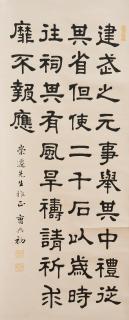 建武之元事舉其中禮從
其省但使二千石以歲時
往祠其有風旱禱請祈求
靡不報應
先生雅正